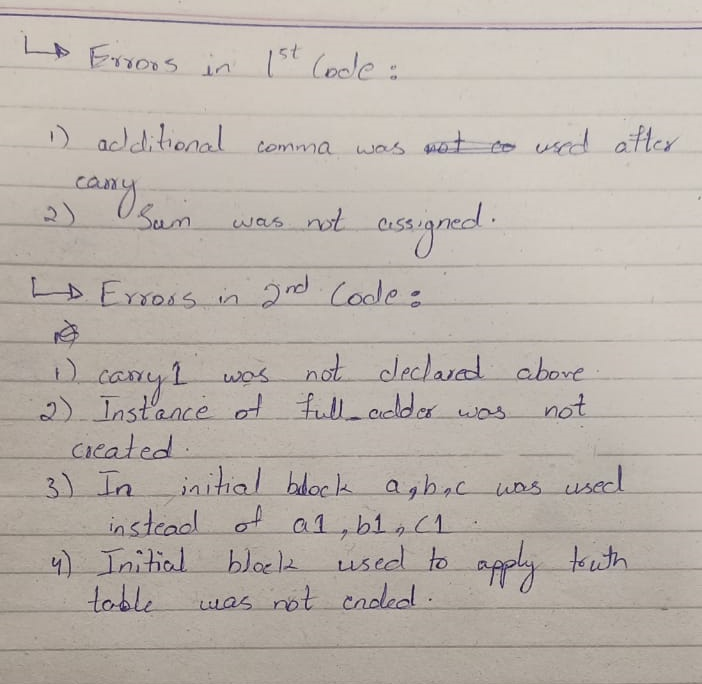 ↳ Errors in 1st Code :
1) additional comma was not co used after
carry
2) Sum was not assigned.
↳ Errors in 2nd Code :
1) carry1 was not declared above.
2) Instance of full_adder was not
created.
3) In initial block a,b,c was used
instead of a1, b1, c1.
4) Initial block used to apply truth
table was not ended.